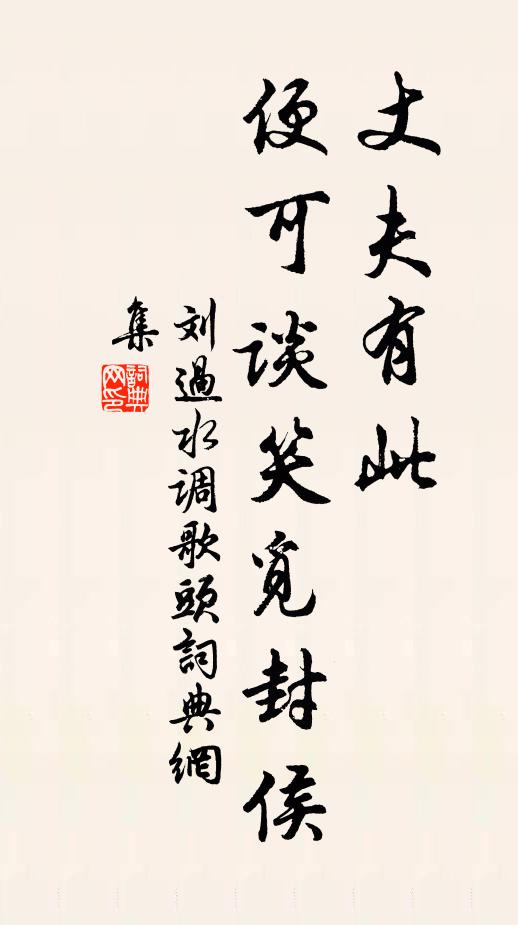 丈夫有此
便可谈笑觅封侯
刘過水调歌頭詞典網
集
詞典
网印